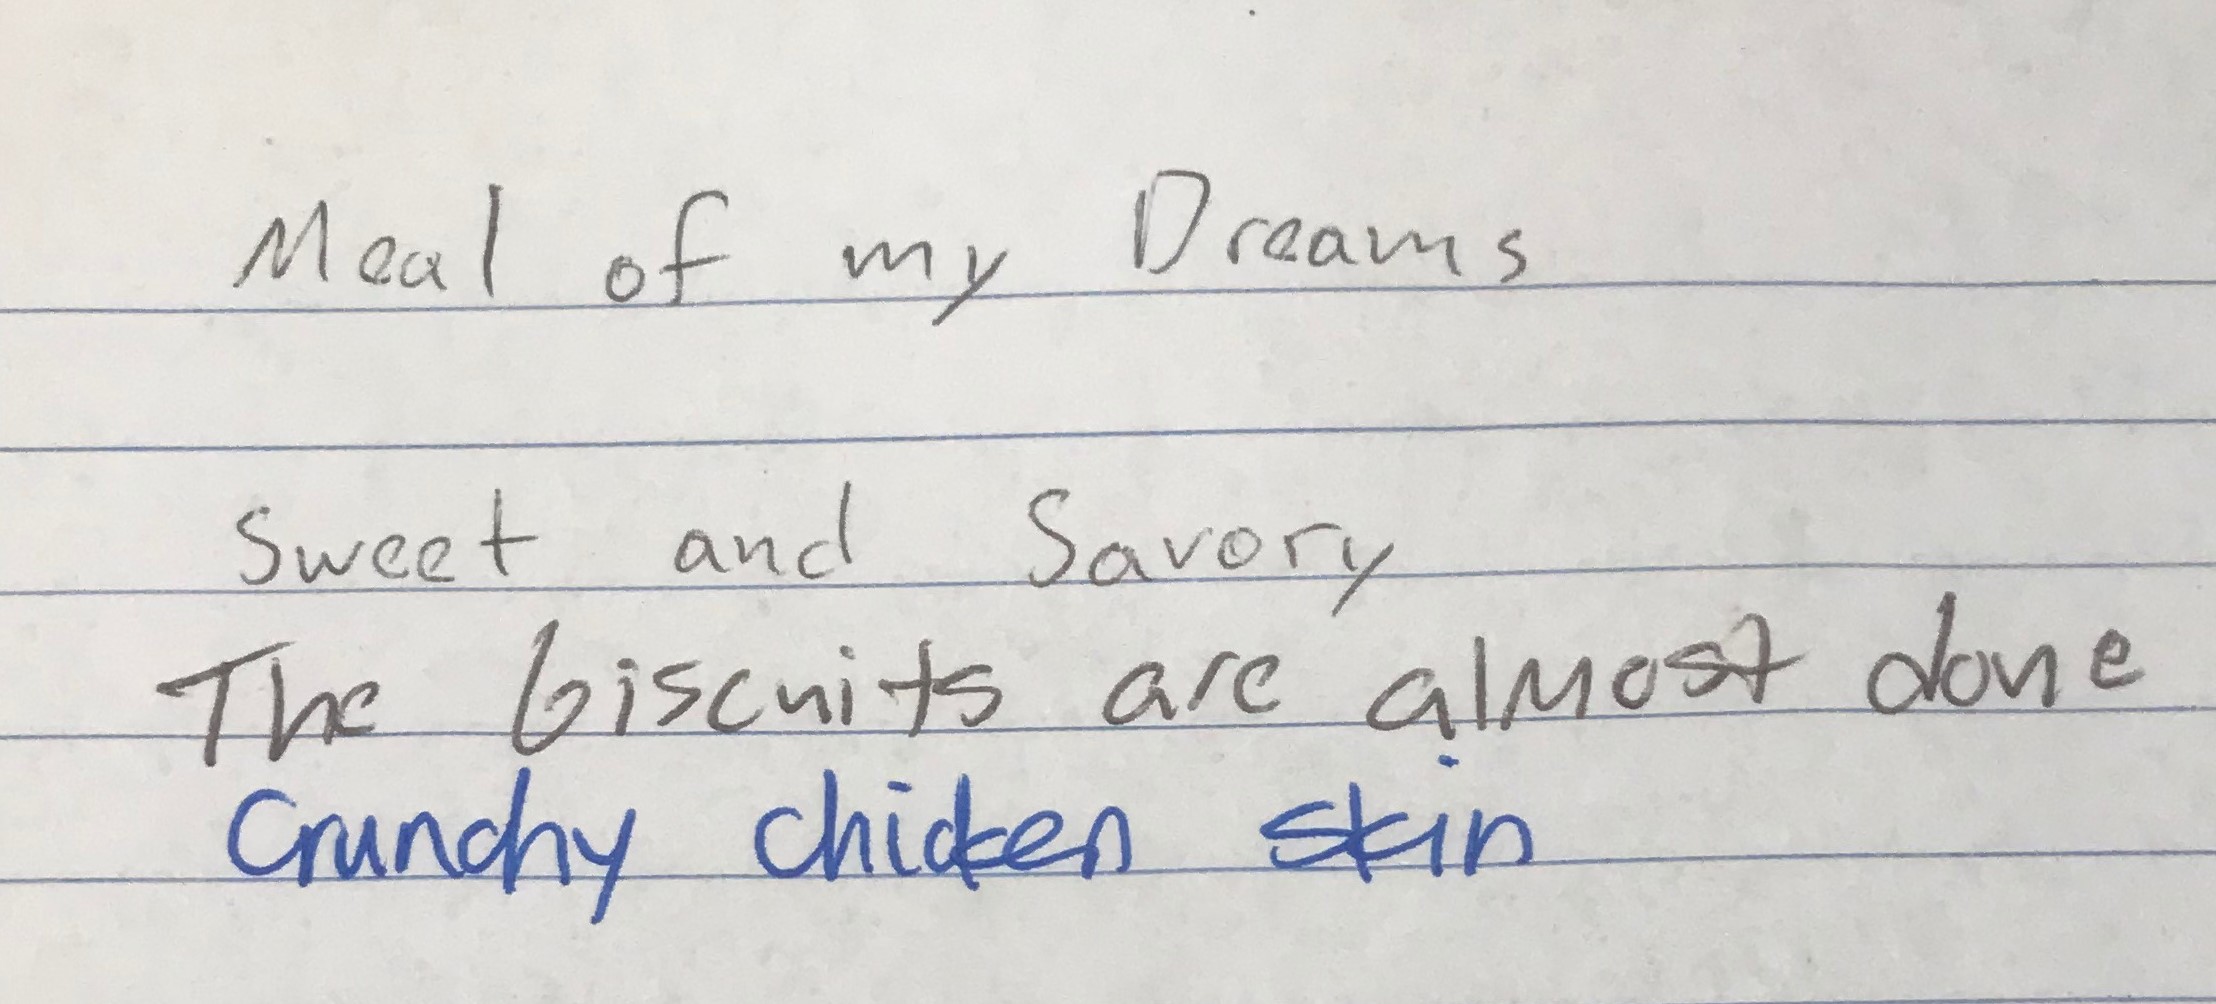 Meal of my Dreams
Sweet and Savory
The biscuits are almost done
Crunchy chicken skin